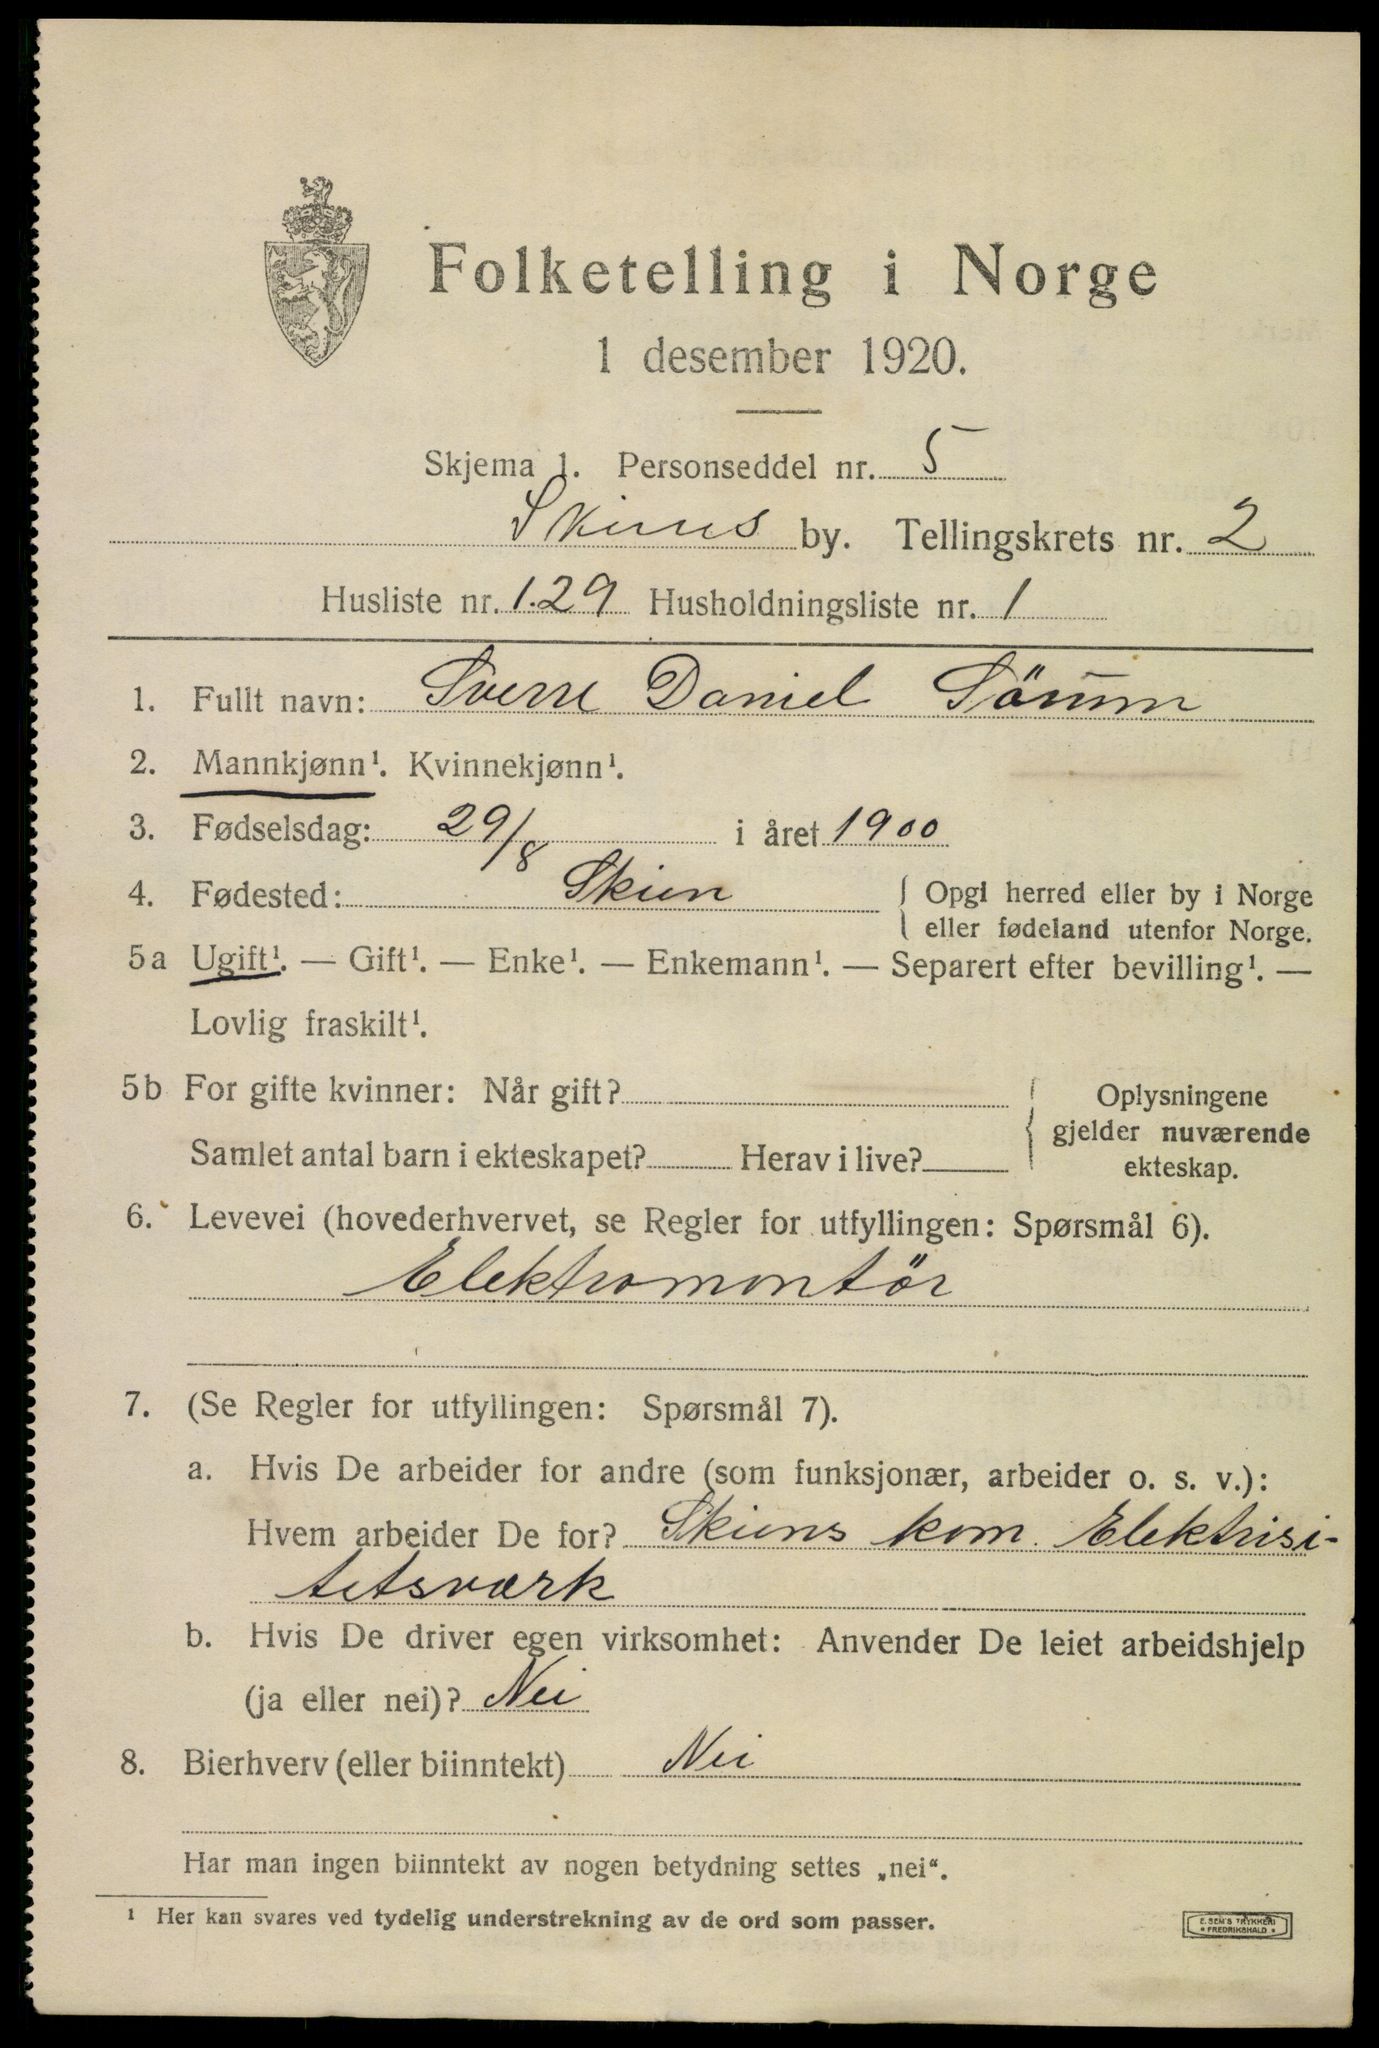 Folketelling i Norge
1 desember 1920.
Skjema 1. Personseddel nr. 5
Skiens by. Tellingskrets nr. 2
Husliste nr. 129 Husholdningsliste nr. 1
1. Fullt navn: Sverre Daniel Sörum
2. Mannkjønn¹. Kvinnekjønn¹.
3. Fødselsdag: 29/8 i året 1900
4. Fødested: Skien { Opgi herred eller by i Norge
eller fødeland utenfor Norge.
5a Ugift¹. — Gift¹. — Enke¹. — Enkemann¹. — Separert efter bevilling¹. —
Lovlig fraskilt¹.
5b For gifte kvinner: Når gift? { Oplysningene
gjelder nuværende
Samlet antal barn i ekteskapet? Herav i live? ekteskap.
6. Levevei (hovederhvervet, se Regler for utfyllingen: Spørsmål 6).
Elektromontör
7. (Se Regler for utfyllingen: Spørsmål 7).
a. Hvis De arbeider for andre (som funksjonær, arbeider o. s. v.):
Hvem arbeider De for? Skiens kom. Elektrisi-
tetsværk
b. Hvis De driver egen virksomhet: Anvender De leiet arbeidshjelp
(ja eller nei)? Nei
8. Bierhverv (eller biinntekt) Nei
Har man ingen biinntekt av nogen betydning settes „nei“.
¹ Her kan svares ved tydelig understrekning av de ord som passer.
E. SEM'S TRYKKERI
* FREDRIKSHALD *